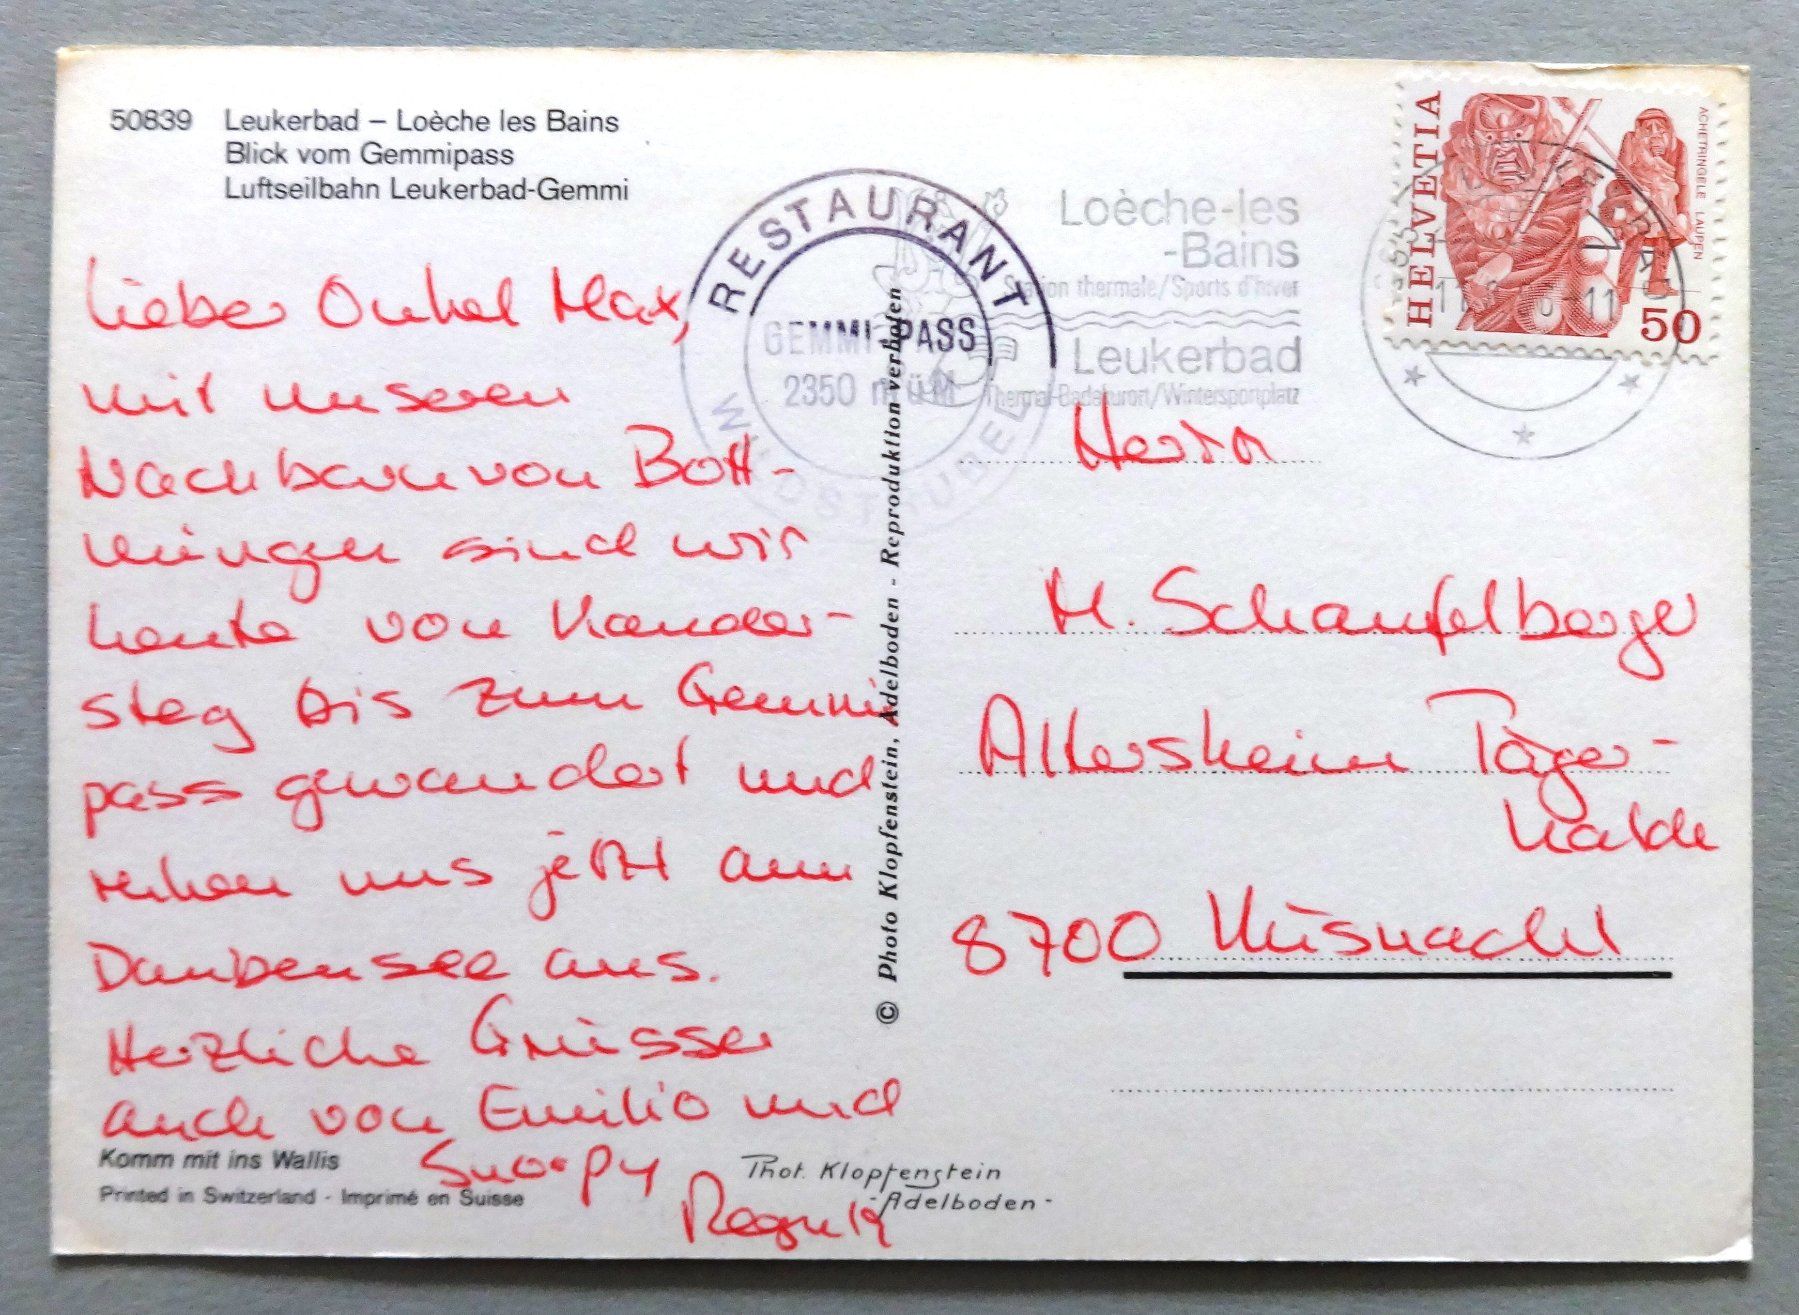 50839 Leukerbad – Loèche les Bains
Blick vom Gemmipass
Luftseilbahn Leukerbad-Gemmi
Lieber Onkel Max,
mit unseren
Nachbarn von Bott-
mingen sind wir
heute von Kander-
steg bis zum Gemmi
pass gewandert und
ruhen uns jetzt am
Daubensee aus.
Herzliche Grüsse
auch von Emilio und
Snoopy
Komm mit ins Wallis
Printed in Switzerland - Imprimé en Suisse
Phot. Klopfenstein
Adelboden-
© Photo Klopfenstein, Adelboden - Reproduktion verboten
RESTAURANT
GEMMI-PASS
2350 m üM
WILDSTRUBEL
Loèche-les
-Bains
Station thermale/Sports d'hiver
Leukerbad
Thermal-Badekurort/Wintersportplatz
HELVETIA
ACHETRINGELE LAUPEN
50
Herrn
M. Schaufelberger
Altersheim Täger-
halde
8700 Küsnacht